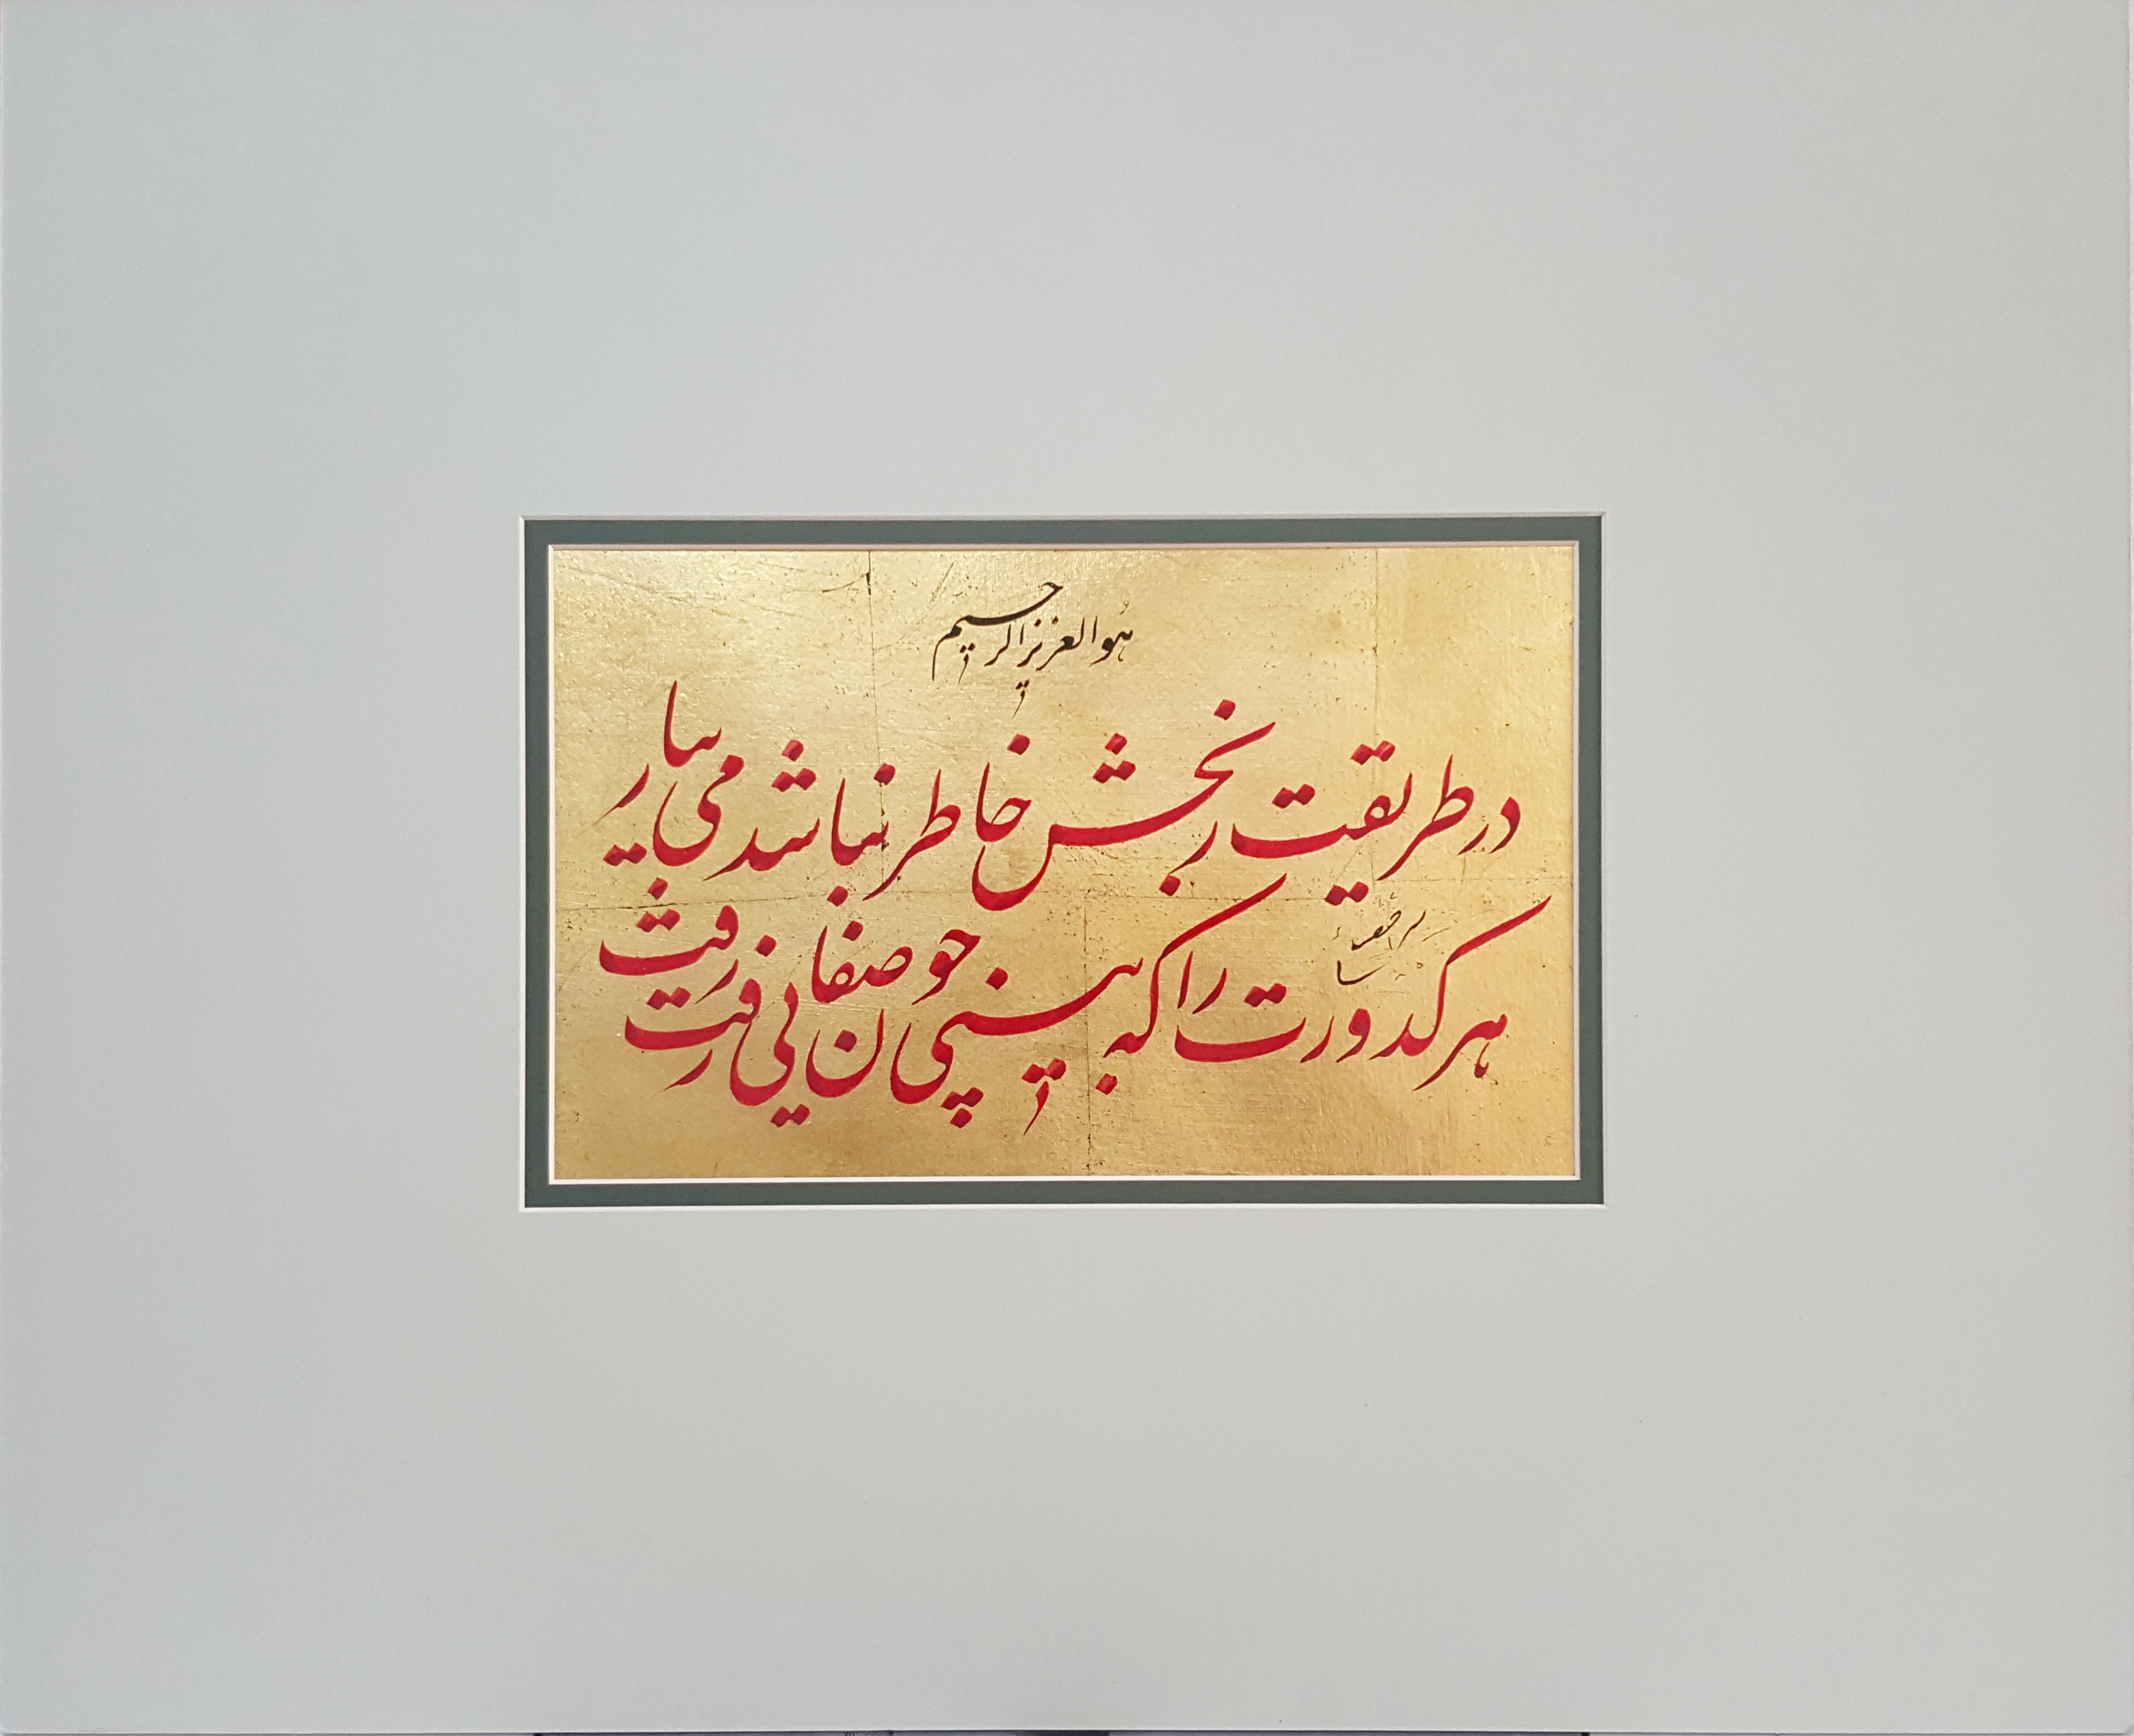 هُوالعزیز الرحیم
در طریقت رنجش خاطر نباشد می بیار
هر کدورت را که بینی چون صفایی رفت رفت